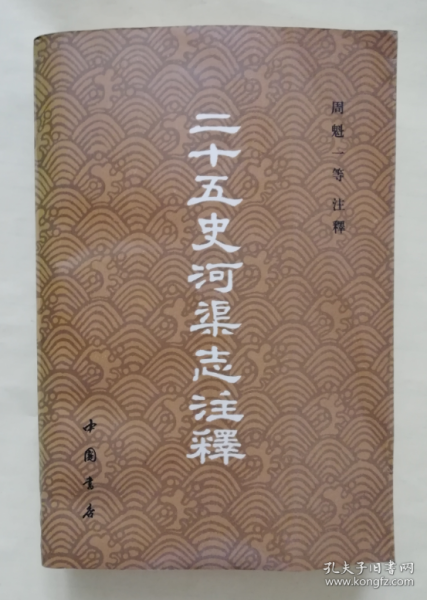 周魁一等注釋
二十五史河渠志注釋
中國書店
孔夫子旧书网
www.kongfz.com